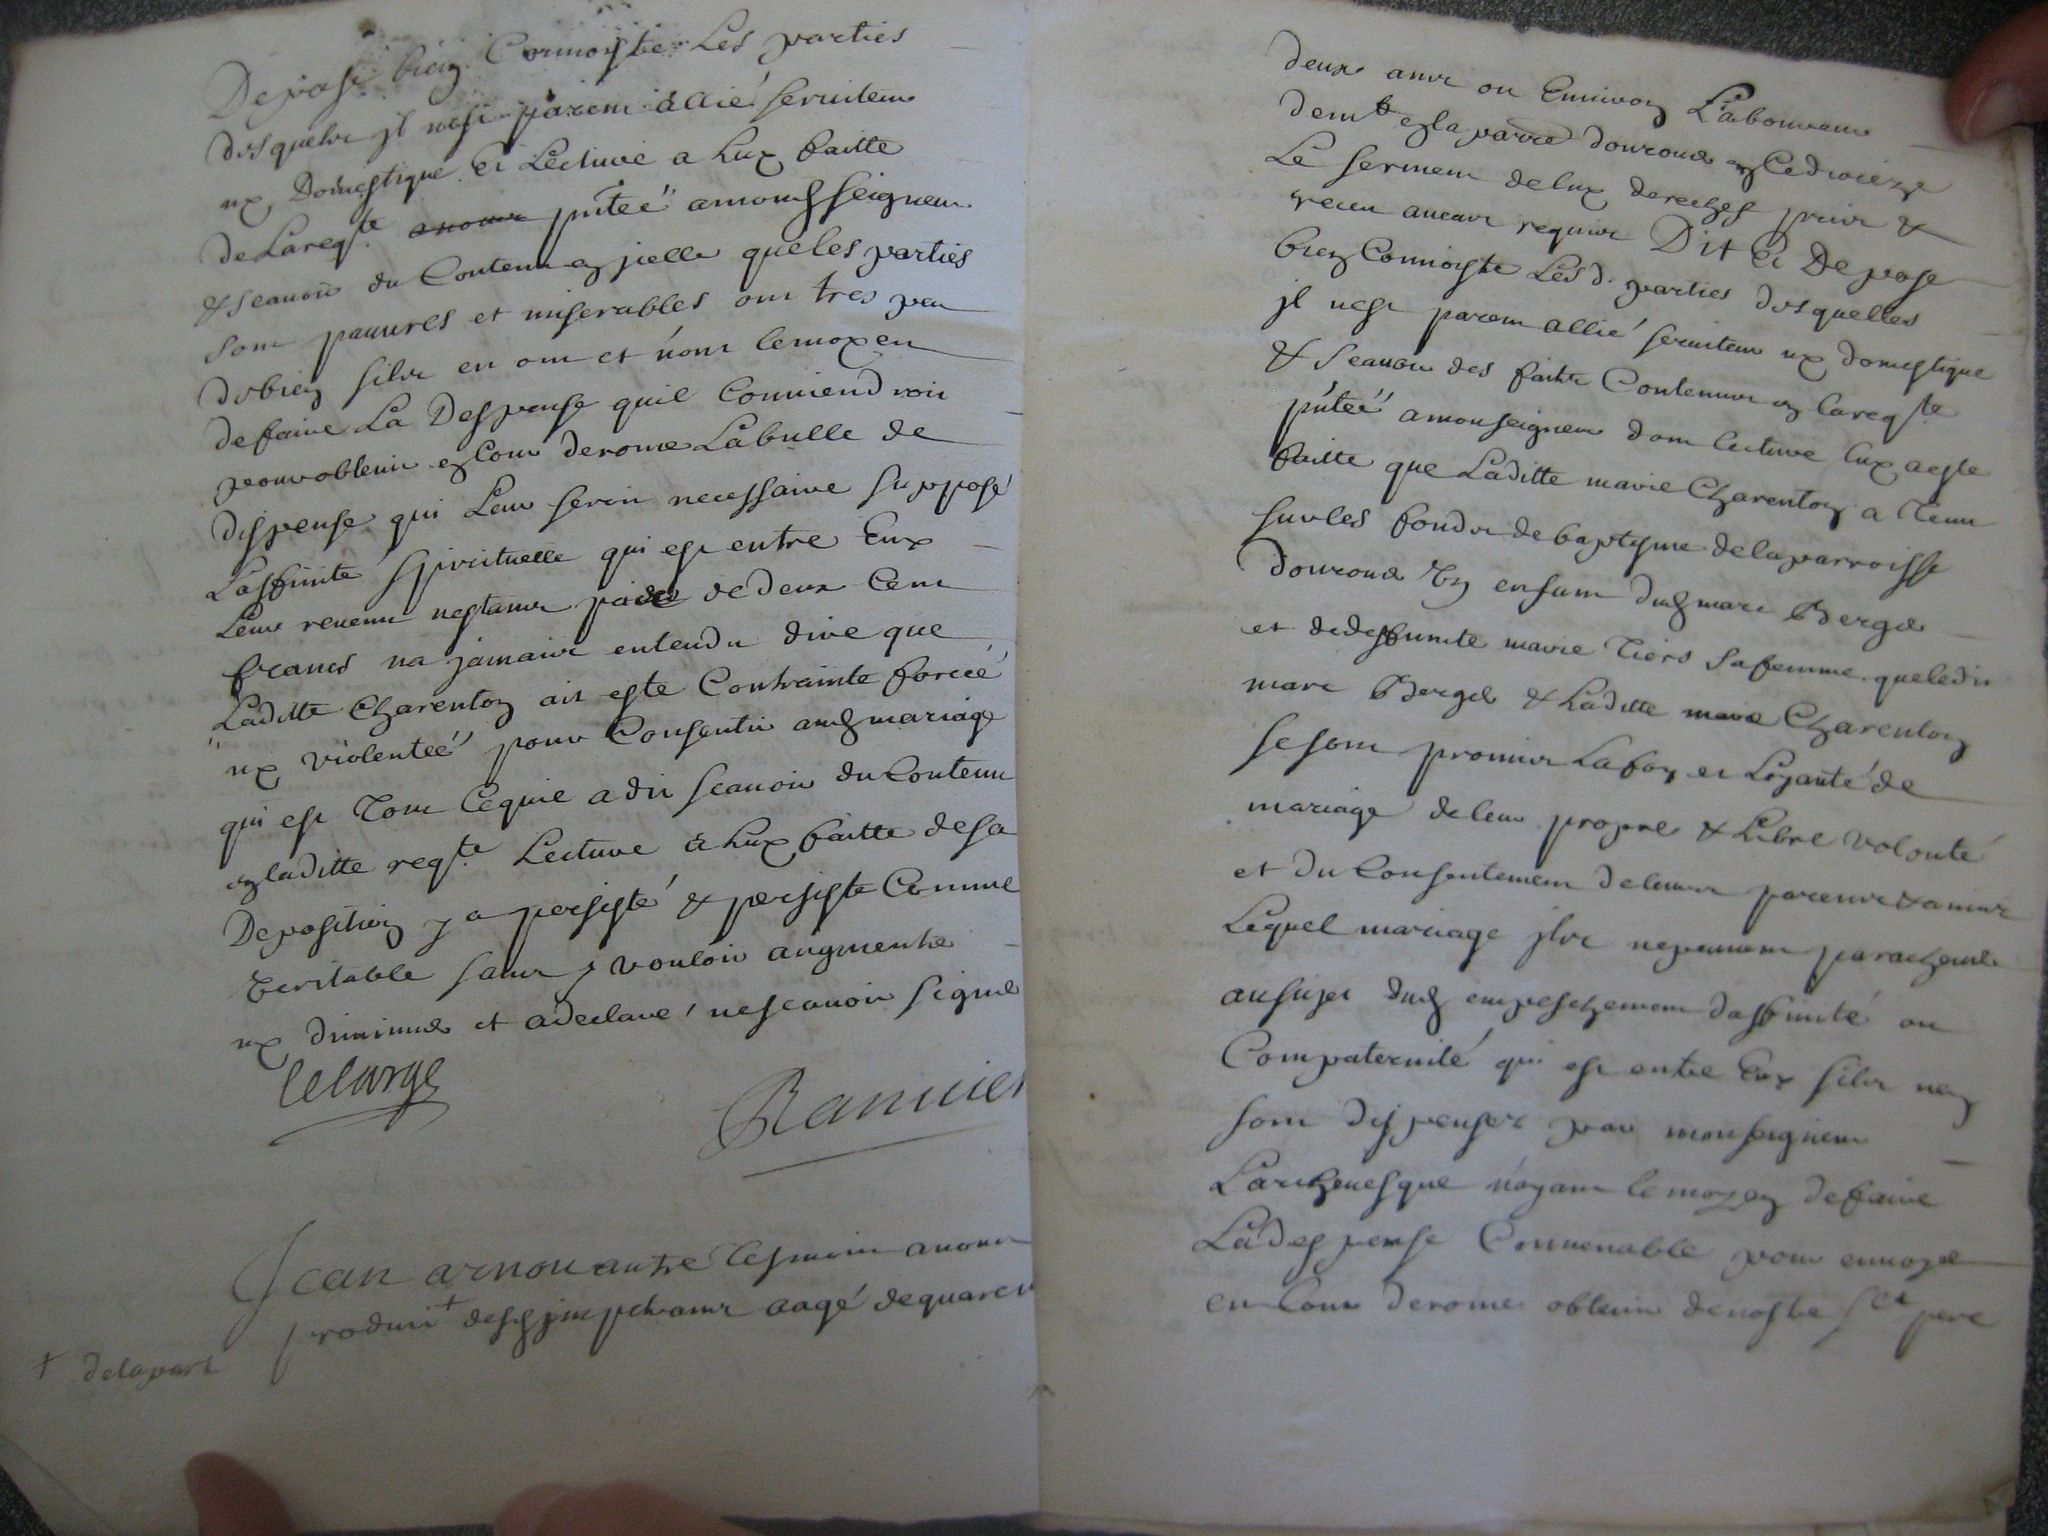 Depose bien Connoistre Les parties
desquels jl nest parent allié seruiteur
ny Domestique Et Lecture a Luy faitte
de Lareqte anous pntée amond Seigneur
& scauoir du Contenu en jcelle que les parties
sont pauures et miserables ont tres peu
de bien silz en ont et nont le moyen
de faire La Despense quil Conuiendroit
pour obtenir en Cour de rome La bulle de
dispense qui Leur seroit necessaire supposé
Laffinité spirituelle qui est entre Eux
Leur reuenu nestant pas de deux Cent
francs na jamais entendu dire que
Laditte Charenton ait esté Contrainte forcée
ny violentée pour Consentir aud mariage
qui est Tout Ce quil a dit scauoir du Contenu
en laditte reqte Lecture à Luy faitte de sa
Deposition y a persisté & persiste Comme
veritable sans y vouloir augmenter
ny diminuer et a declaré nescauoir signer
Lelarge
Ranvier
Jean arnou autre Tesmoin anous
produit + desd jmpetrans aagé de quarente
+ de la part
deux ans ou Enuiron Laboureur
demt en la parre dourouer en Ce dioceze
Le serment de luy de reches prins &
receu aucas requis Dit Et Depose
bien Connoistre Lesd. parties desquelles
jl nest parent allié seruiteur ny domestique
& Scauoir des faits Contenus en lareqte
pntée amonseigneur dont lecture luy a esté
faitte que Laditte marie Charenton a Tenu
sur les fonds de baptesme de la parroisse
dourouer Un enfant dud marc Berger
et de deffunte marie Tiers sa femme que ledit
marc Berger & Laditte marie Charenton
se sont promis La foy et Loyauté de
mariage de leur propre & Libre volonté
et du Consentement de leurs parents & amis
Lequel mariage jlz ne peuuent paracheuer
au sujet dud empeschement daffinité ou
Compaternité qui est entre Eux silz nen
sont dispensez par monseigneur
Larcheuesque nayant le moyen de faire
La despense Conuenable pour enuoyer
en Cour de rome obtenir de nostre St pere